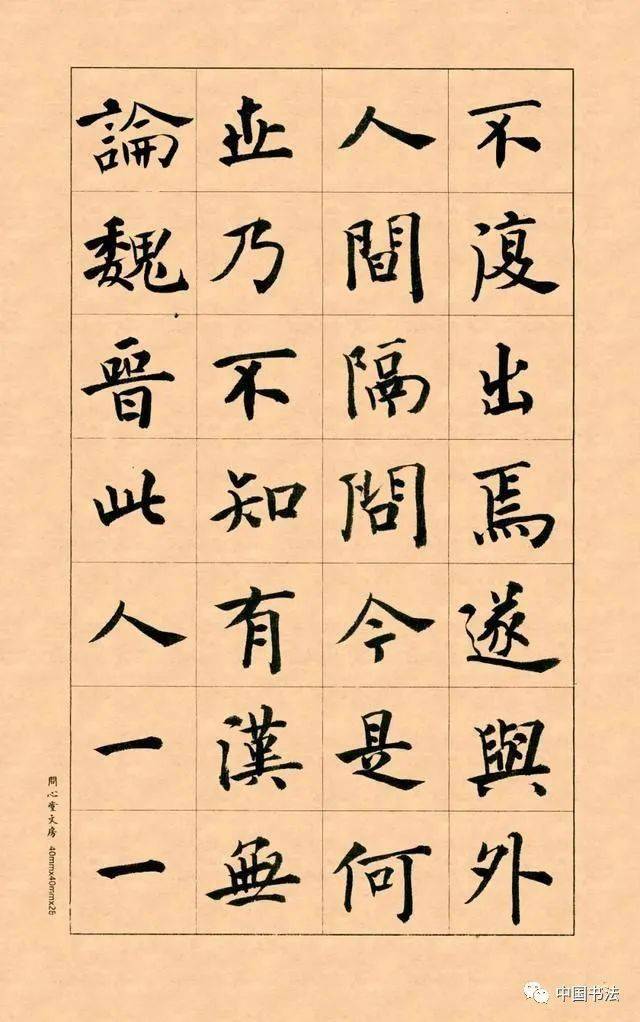 不復出焉遂與外
人間隔問今是何
世乃不知有漢無
論魏晉此人一一
問心堂文房 40mmx40mmx28
中国书法